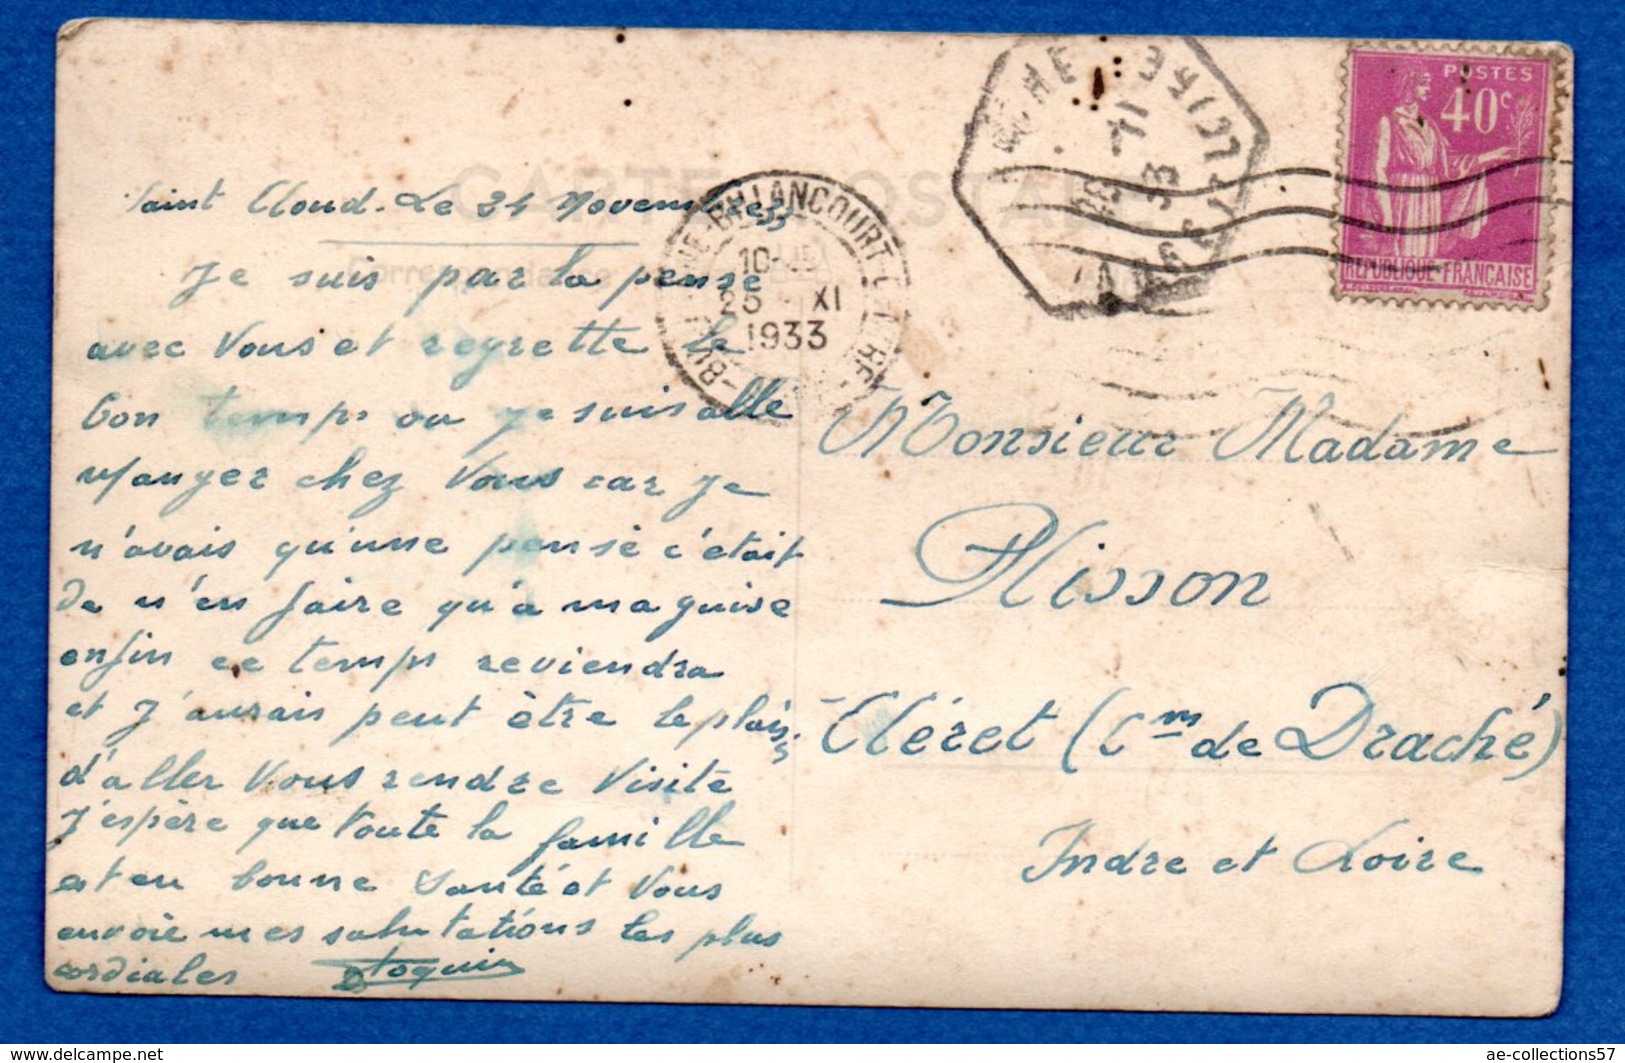 CARTE POSTALE
Correspondance
Saint Cloud. Le 24 Novembre 33
Je suis par la pensé
avec Vous et regrette le
bon temps ou je suis allé
manger chez Vous car je
n'avais qu'une pensé c'était
de n'en faire qu'à ma guise
enfin ce temps reviendra
et j'aurais peut être le plaisir
d'aller Vous rendre Visite
J'espère que toute la famille
est en bonne Santé et Vous
envoie mes salutations les plus
cordiales
POSTES
40c
REPUBLIQUE-FRANÇAISE
BILLANCOURT
10
25 XI
1933
Monsieur Madame
Plisson
Cléret (Cm de Draché)
Indre et Loire
ae-collections57